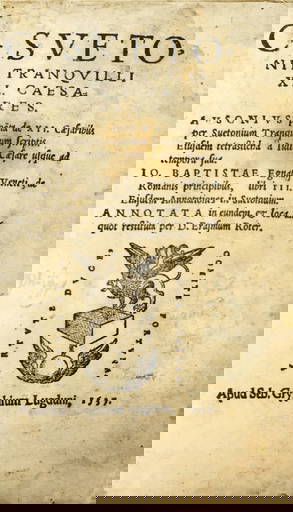 C. SVETO
NII TRANQVILLI
XII. CAESA
RES.
AVSONIVS poëta de XII. Cæsaribus
per Suetonium Tranquil
lum scriptis.
Eiusdem tetrasticha à Iulio
Cæsare usque ad
tempora sua.
IO. BAPTISTAE Egnatij
Veneti, de
Romanis principibus, libri III.
Eiusdem Annotationes in Suetonium.
ANNOTATA in eundem, et loca ali
quot restituta per D. Erasmum Roter.
VIRTVTE DVCE
COMITE FORTVNA
Apud Seb. Gryphium Lugduni,